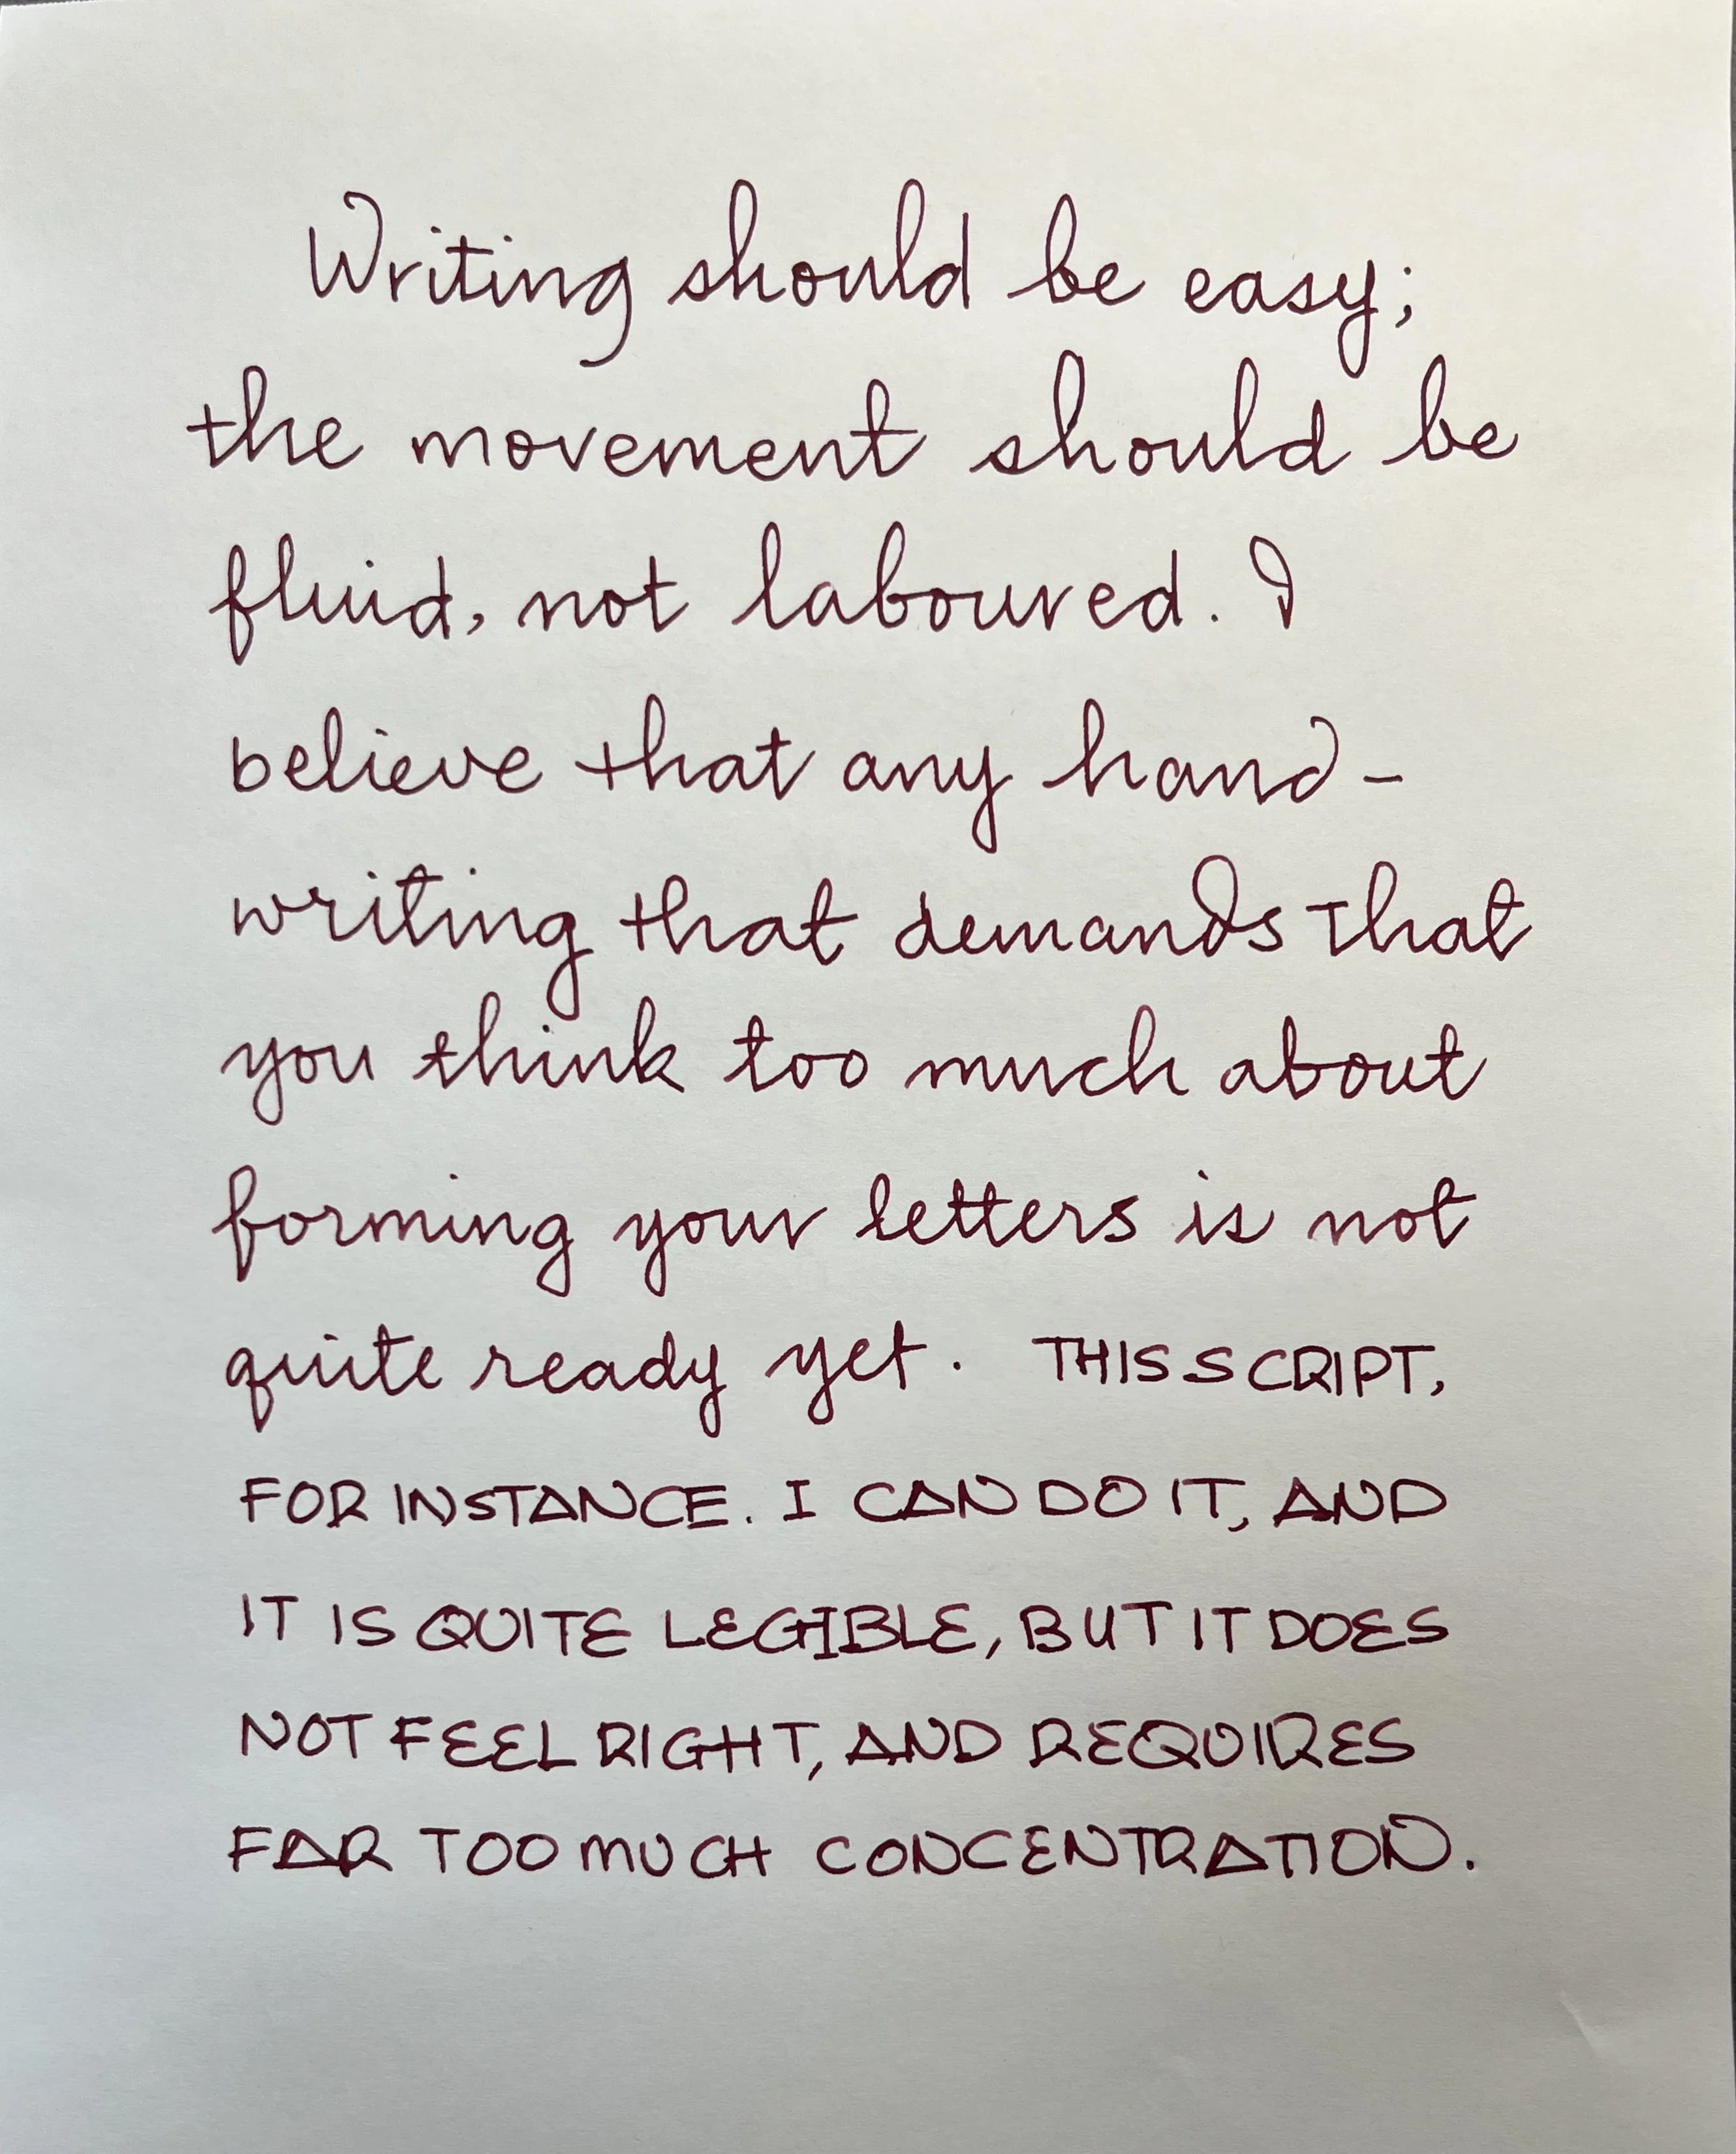 Writing should be easy;
the movement should be
fluid, not laboured. I
believe that any hand-
writing that demands that
you think too much about
forming your letters is not
quite ready yet. THIS SCRIPT,
FOR INSTANCE. I CAN DO IT, AND
IT IS QUITE LEGIBLE, BUT IT DOES
NOT FEEL RIGHT, AND REQUIRES
FAR TOO MUCH CONCENTRATION.